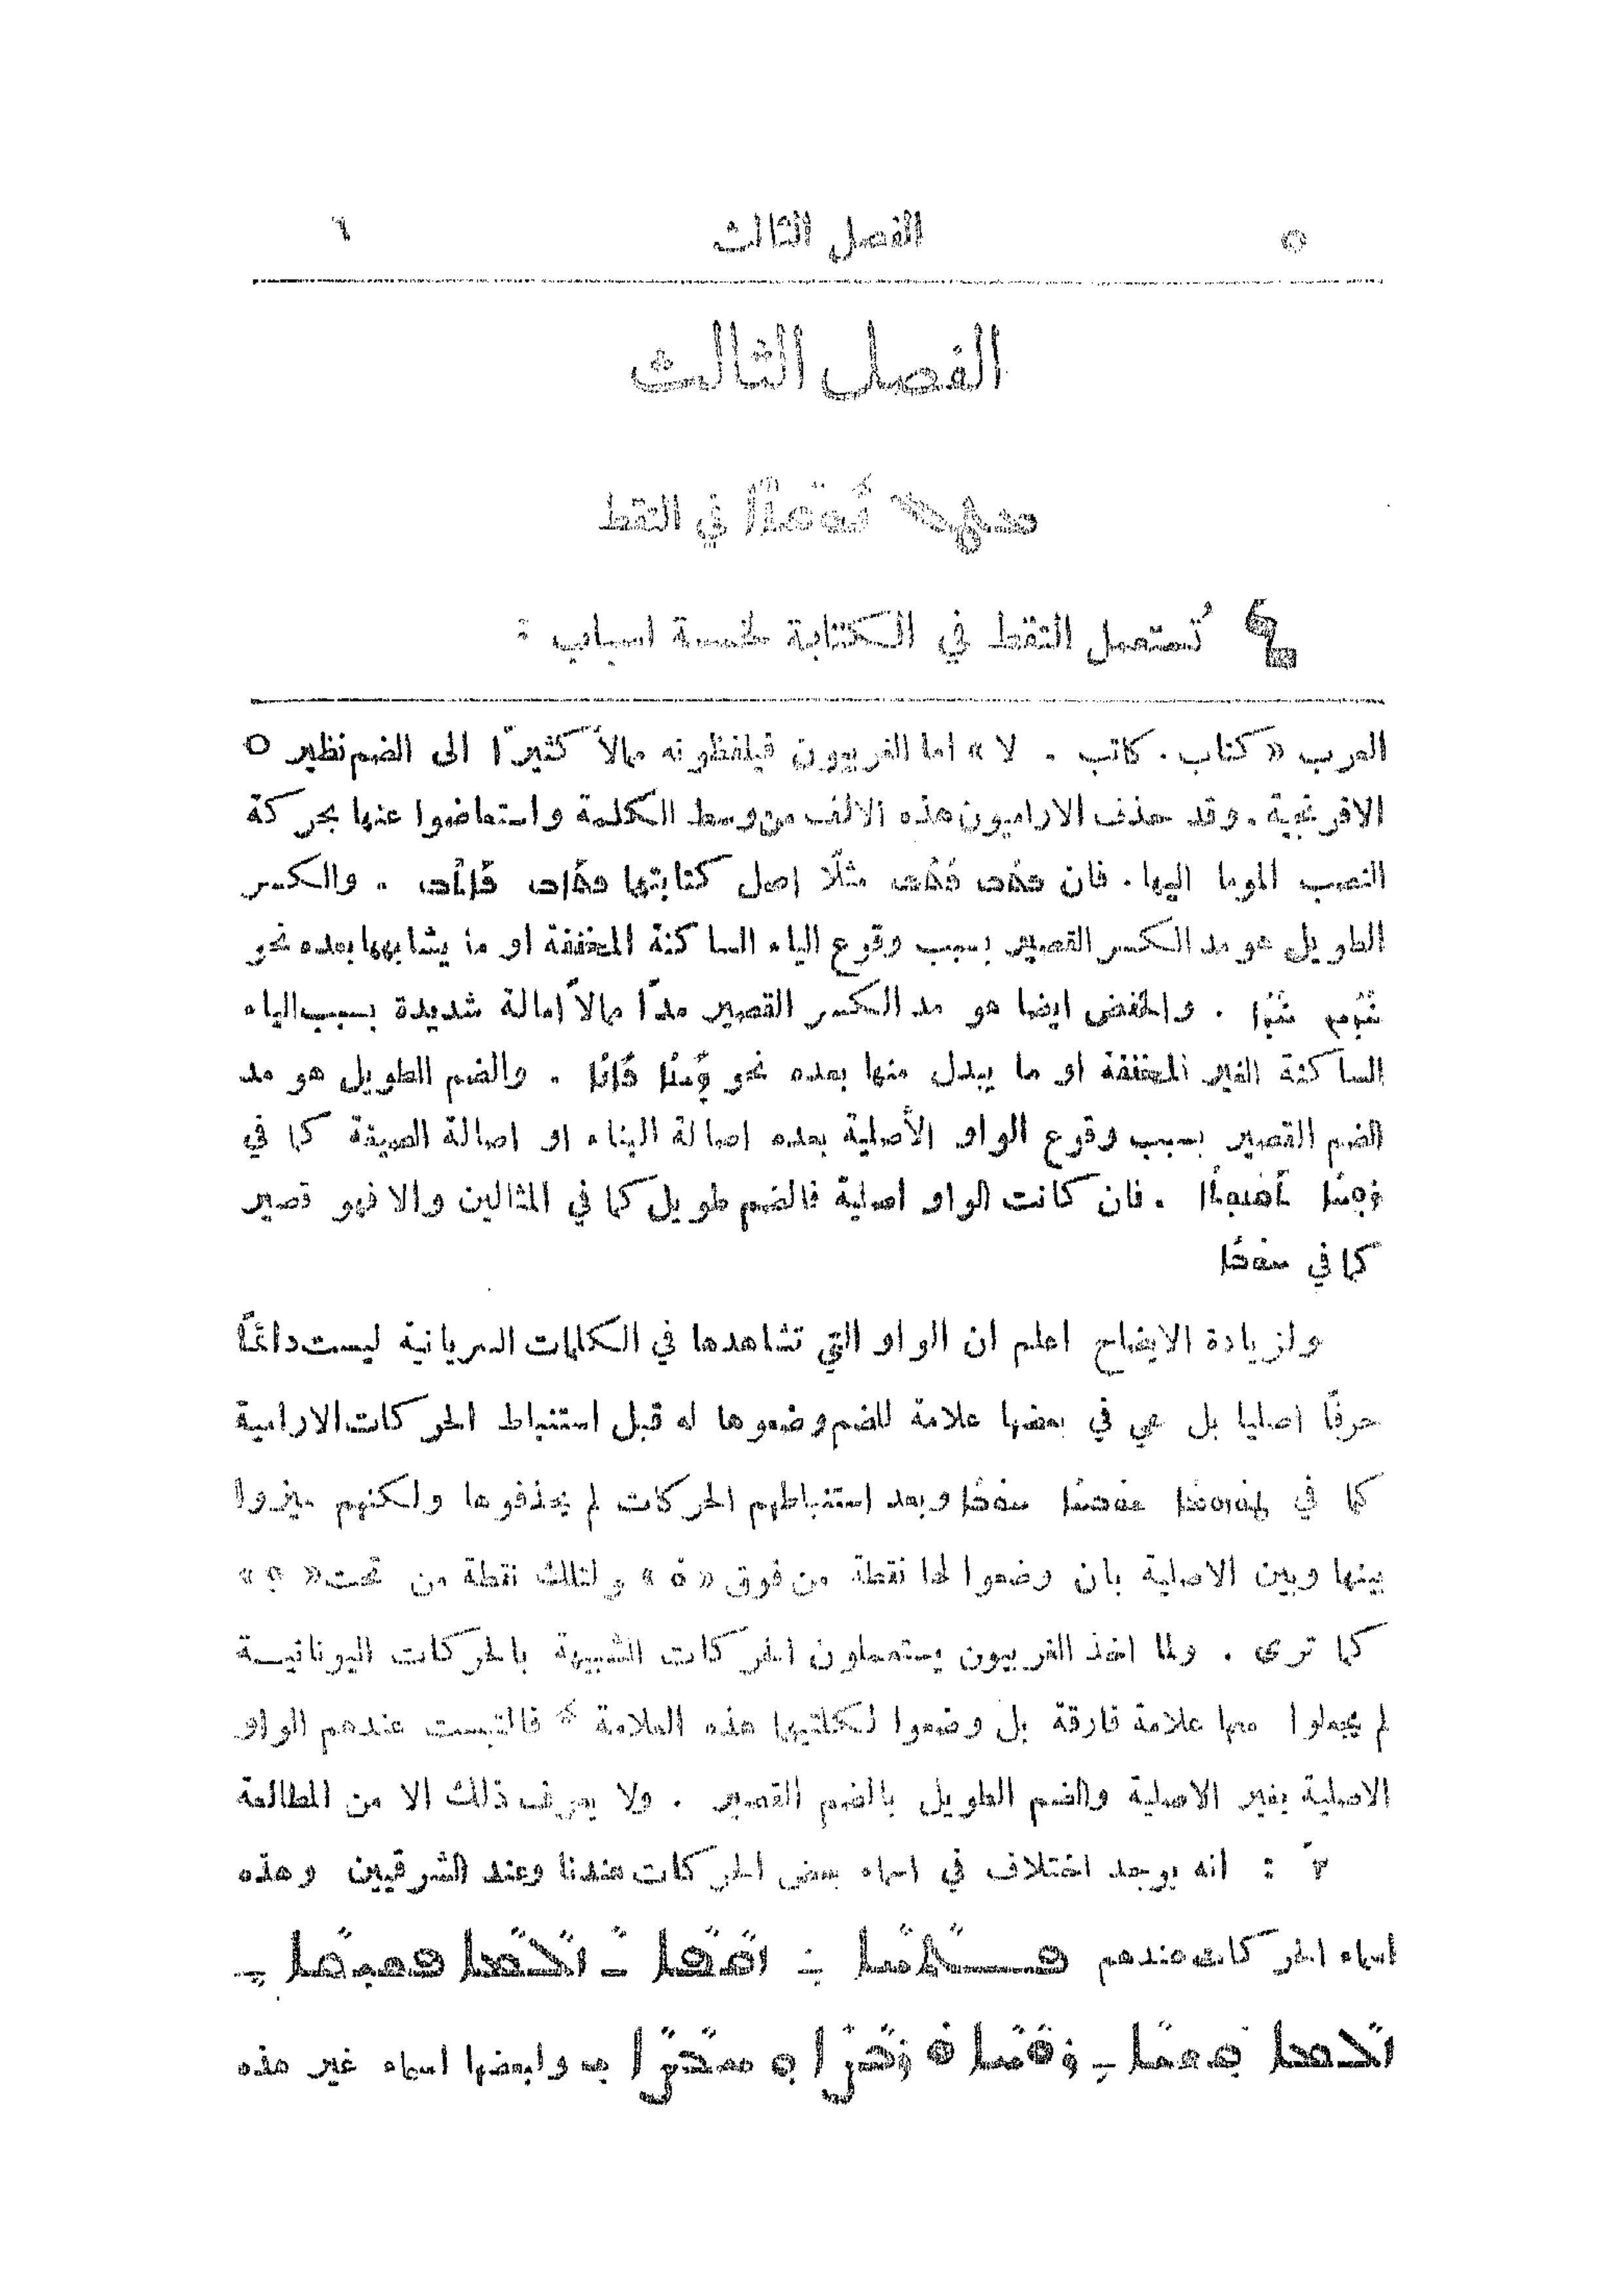 ٥ الفصل الثالث ٦
الفصل الثالث
في النقط
تُستعمل النقط في الكتابة لخمسة اسباب :
العرب « كتاب . كاتب . لا » اما الغربيون فيلفظونه ممالاً كثيرًا الى الضم نظير O
الافرنجية . وقد حذف الاراميون هذه الالف من وسط الكلمة واستعاضوا عنها بحركة
النصب الموما اليها . فان مثلًا اصل كتابتها . والكسر
الطويل هو مد الكسر القصير بسبب وقوع الياء الساكنة المخففة او ما يشابهها بعده نحو
. والخفض ايضا هو مد الكسر القصير مدًا ممالاً امالة شديدة بسبب الياء
الساكنة الغير المخففة او ما يبدل منها بعده نحو . والضم الطويل هو مد
الضم القصير بسبب وقوع الواو الأصلية بعده اصالة البناء او اصالة الصيغة كما في
. فان كانت الواو اصلية فالضم طويل كما في المثالين والا فهو قصير
كما في ܚܘܒܐ
ولزيادة الايضاح اعلم ان الواو التي تشاهدها في الكلمات السريانية ليست دائمًا
حرفًا اصليا بل هي في بعضها علامة للضم وضعوها له قبل استنباط الحركات الارامية
كما في وبعد استنباطهم الحركات لم يحذفوها ولكنهم ميزوا
بينها وبين الاصلية بان وضعوا لها نقطة من فوق « ܘ̇ » ولتلك نقطة من تحت « ܘ̣ »
كما ترى . ولما اخذ الغربيون يستعملون الحركات الشبيهة بالحركات اليونانيـة
لم يجعلوا معها علامة فارقة بل وضعوا لكلتيهما هذه العلامة فالتبست عندهم الواو
الاصلية بغير الاصلية والضم الطويل بالضم القصير . ولا يعرف ذلك الا من المطالعة
٢ً : انه يوجد اختلاف في اسماء بعض الحركات عندنا وعند الشرقيين وهذه
اسماء الحركات عندهم
ولبعضها اسماء غير هذه